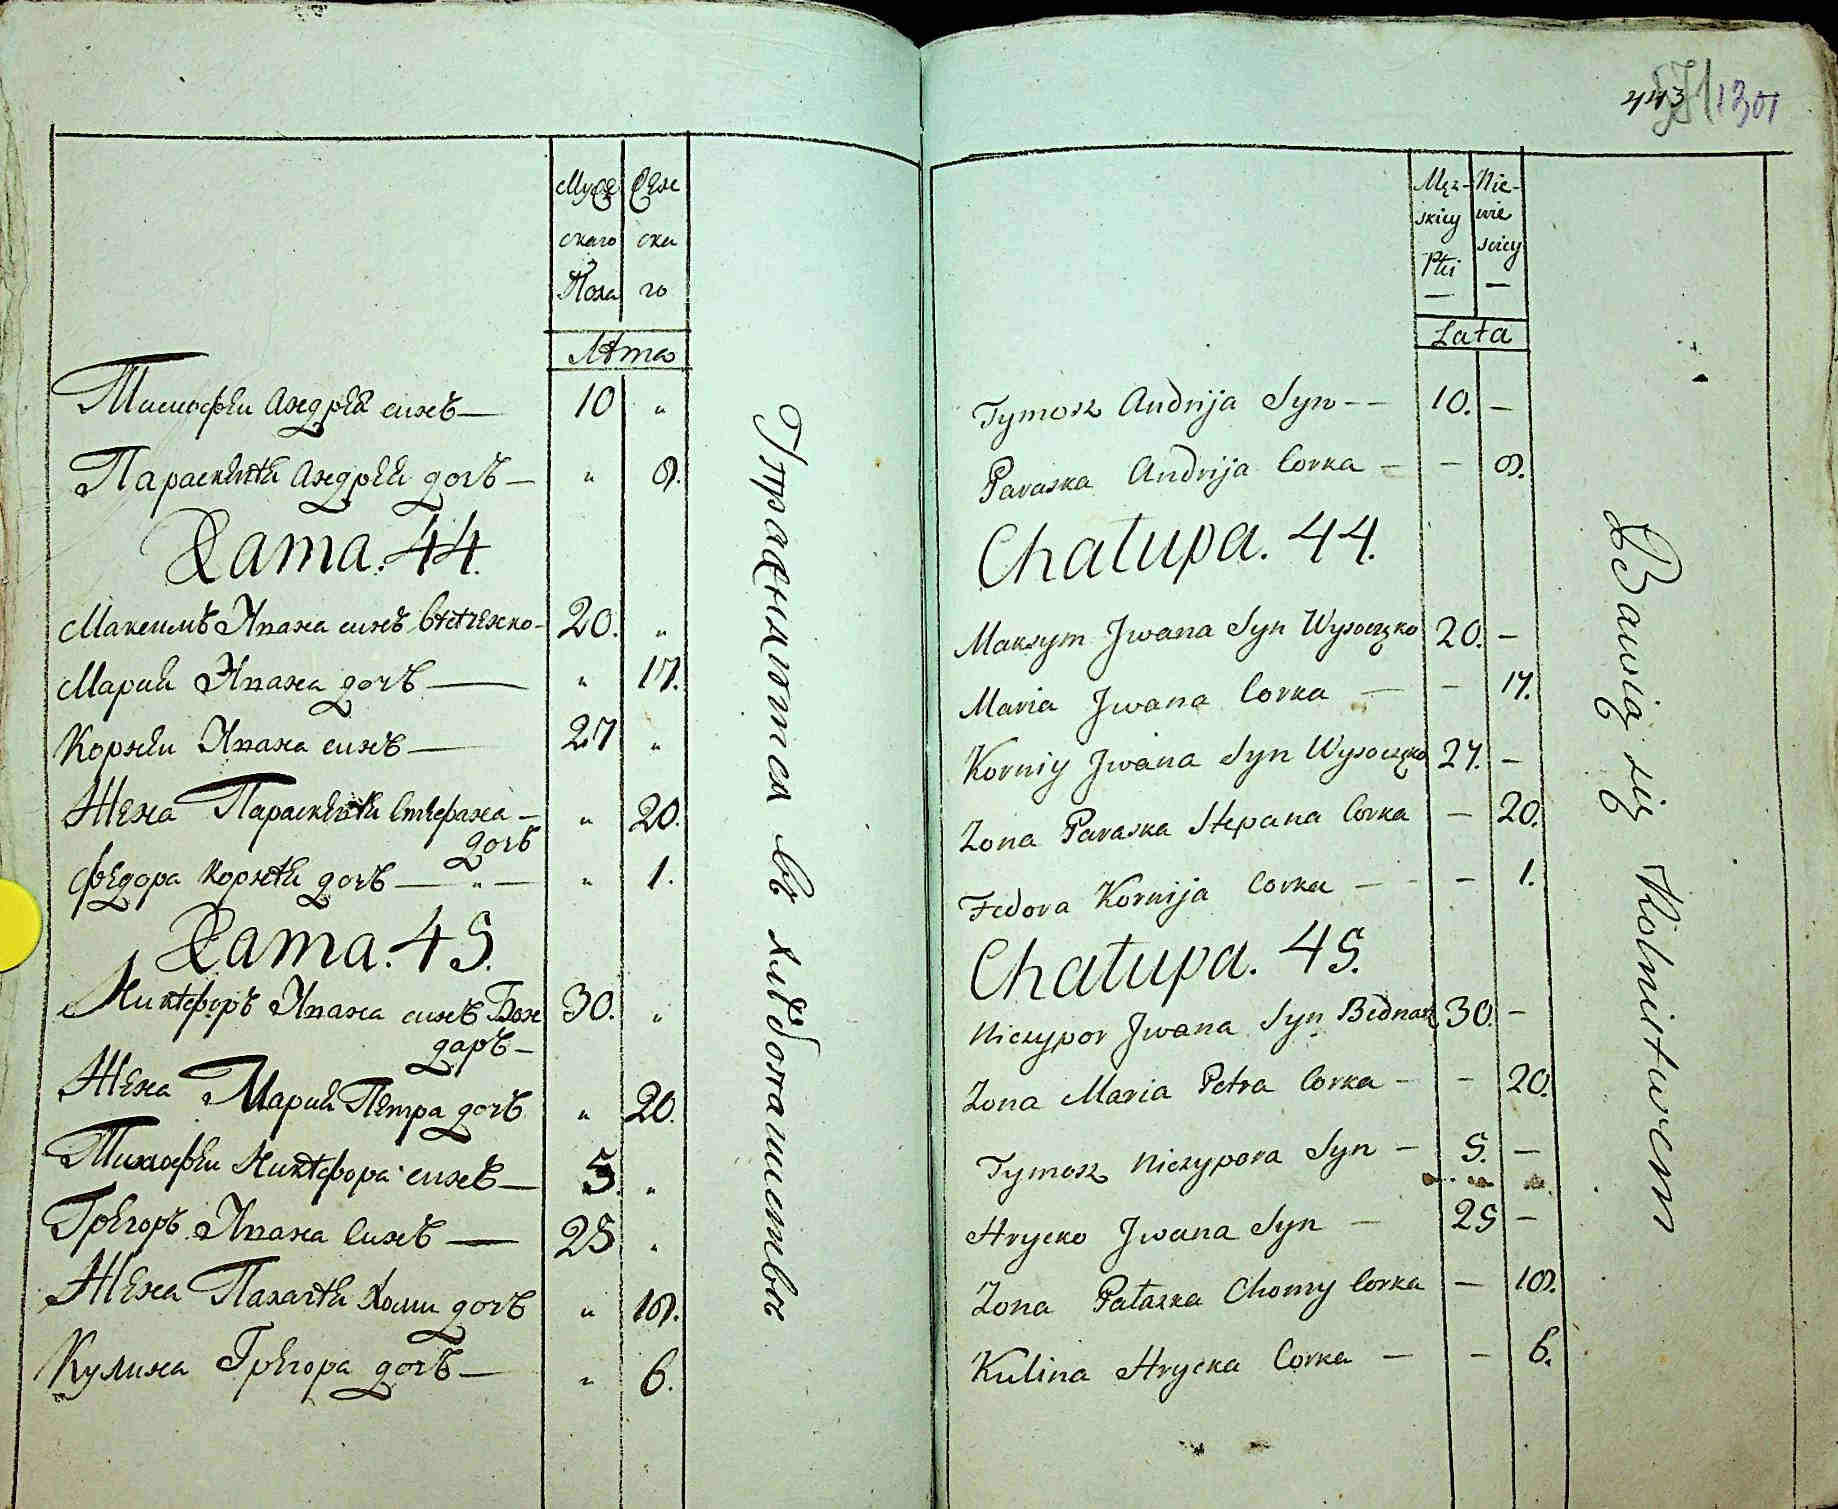 Муже Жен
скаго ска
Пола го
Лѣта
Тимофѣи Андрѣя синъ — 10 "
Параскѣвѣя Андрѣя дочъ — " 8.
Хата. 44.
Максимъ Ивана синъ 20. "
Мария Ивана дочъ — " 17.
Корнѣи Ивана синъ — 27 "
Жена Параскѣвѣя Стефана — " 20.
дочъ
Федора Корнѣя дочъ — " — " 1.
Хата. 45.
Никѣфоръ Ивана синъ Бон 30. "
даръ —
Жена Мария Петра дочъ " 20.
Тимофѣи Никѣфора синъ — 5. "
Грѣгоръ Ивана Синъ — 25 "
Жена Палагѣя Хоми дочъ " 18.
Кулина Грѣгора дочъ — " 6.
Упражняются въ хлѣбопашествѣ
443 1301
Męz- Nie-
skiey wie
Płci sciey
— —
Lata
Tymosz Andrija Syn - - 10. —
Paraska Andrija Corka — — 8.
Chałupa. 44.
Maksym Jwana Syn Wysoczko 20. —
Maria Jwana Corka — — 17.
Korniy Jwana Syn Wysoczko 27. —
Zona Paraska Stepana Corka — 20.
Fedora Kornija Corka — - — 1.
Chałupa. 45.
Niczypor Jwana Syn Bednarz 30. —
Zona Maria Petra Corka — — 20.
Tymosz Niczypora Syn — 5. —
Hrycko Jwana Syn — 25 —
Zona Pałaszka Chomy Corka — 18.
Kulina Hrycka Corka — — 6.
Bawią się Rolnictwem